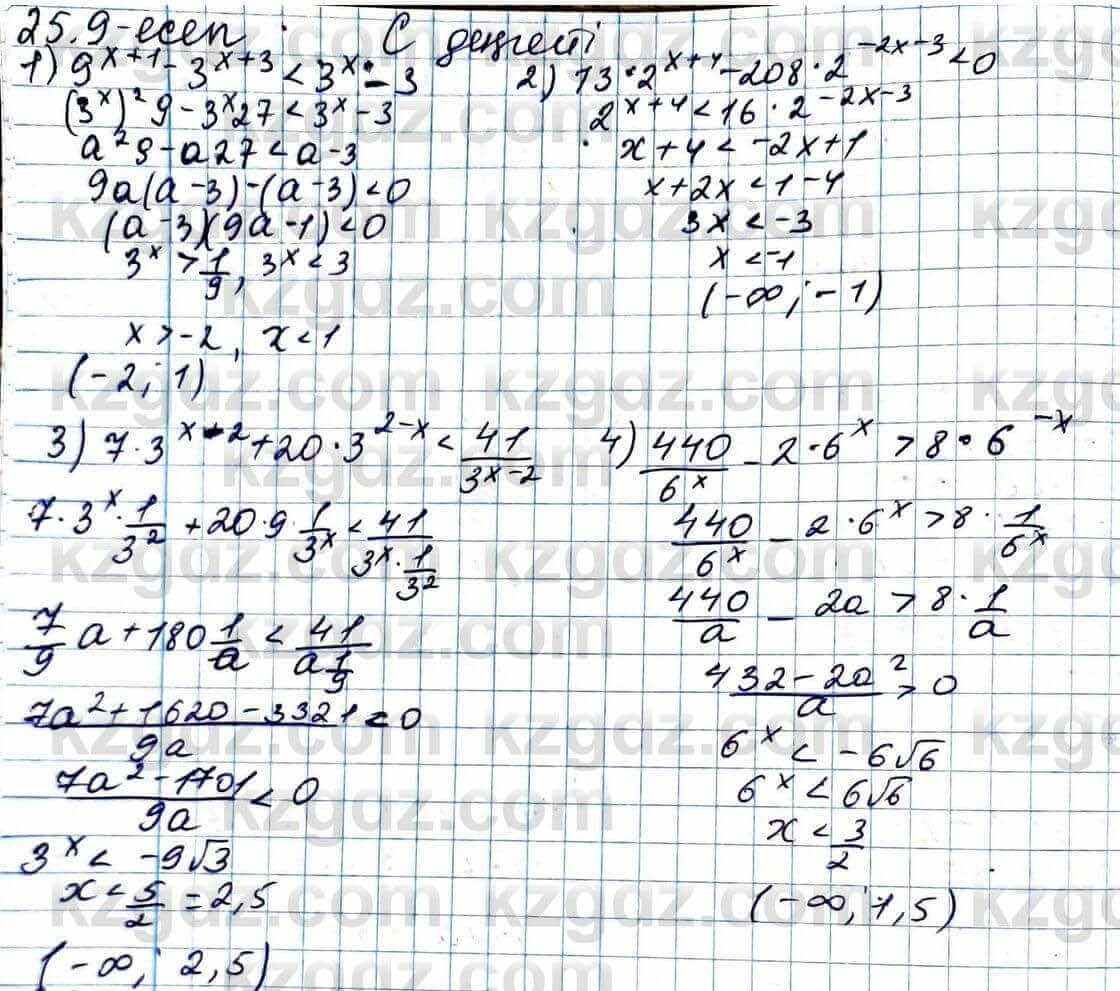 25.9-есеп С деңгейі
1) 9^{x+1} - 3^{x+3} < 3^x - 3
(3^x)^2 9 - 3^x 27 < 3^x - 3
a^2 9 - a 27 < a - 3
9a(a-3) - (a-3) < 0
(a-3)(9a-1) < 0
3^x > 1/9, 3^x < 3
x > -2, x < 1
(-2; 1)
2) 13 · 2^{x+4} - 208 · 2^{-2x-3} < 0
2^{x+4} < 16 · 2^{-2x-3}
x + 4 < -2x + 1
x + 2x < 1 - 4
3x < -3
x < -1
(-∞; -1)
3) 7 · 3^{x-2} + 20 · 3^{2-x} < 41/3^{x-2}
7 · 3^x · 1/3^2 + 20 · 9 · 1/3^x < 41/(3^x · 1/3^2)
7/9 a + 180 1/a < 41/(a 1/9)
(7a^2 + 1620 - 3321)/9a < 0
(7a^2 - 1701)/9a < 0
3^x < -9√3
x < 5/2 = 2,5
(-∞; 2,5)
4) 440/6^x - 2 · 6^x > 8 · 6^{-x}
440/6^x - 2 · 6^x > 8 · 1/6^x
440/a - 2a > 8 · 1/a
(432 - 2a^2)/a > 0
6^x < -6√6
6^x < 6√6
x < 3/2
(-∞; 1,5)
kzgdz.com